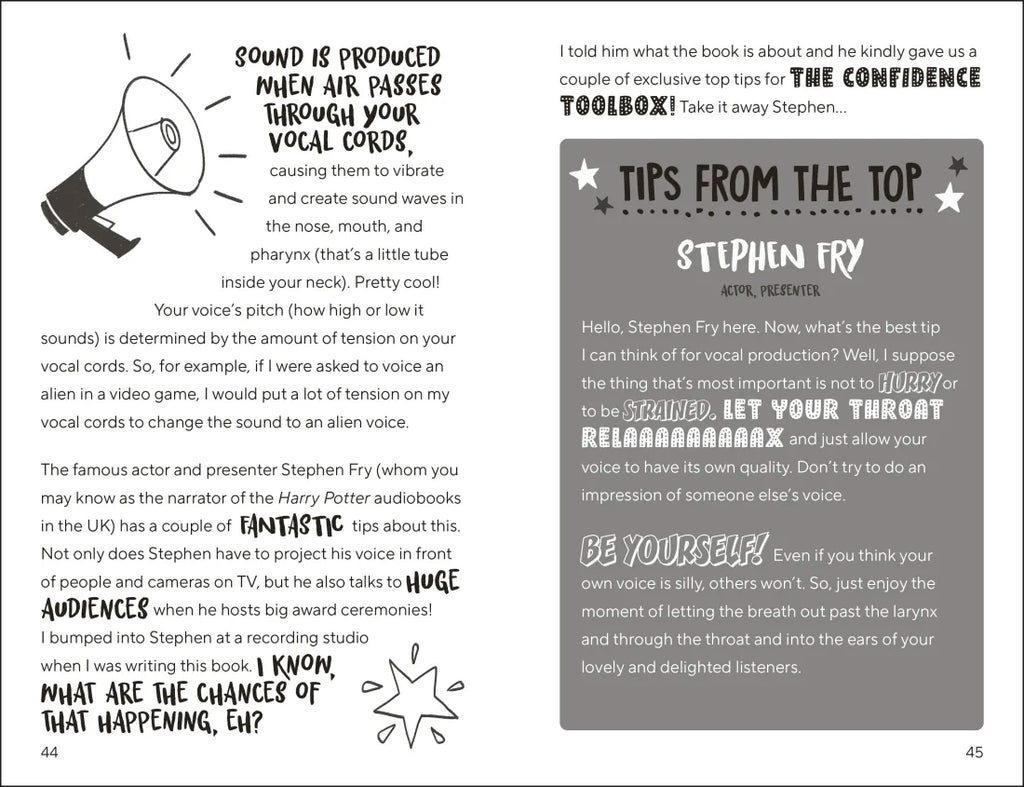 SOUND IS PRODUCED
WHEN AIR PASSES
THROUGH YOUR
VOCAL CORDS,
causing them to vibrate
and create sound waves in
the nose, mouth, and
pharynx (that's a little tube
inside your neck). Pretty cool!
Your voice's pitch (how high or low it
sounds) is determined by the amount of tension on your
vocal cords. So, for example, if I were asked to voice an
alien in a video game, I would put a lot of tension on my
vocal cords to change the sound to an alien voice.
The famous actor and presenter Stephen Fry (whom you
may know as the narrator of the Harry Potter audiobooks
in the UK) has a couple of FANTASTIC tips about this.
Not only does Stephen have to project his voice in front
of people and cameras on TV, but he also talks to HUGE
AUDIENCES when he hosts big award ceremonies!
I bumped into Stephen at a recording studio
when I was writing this book. I KNOW,
WHAT ARE THE CHANCES OF
THAT HAPPENING, EH?
44
I told him what the book is about and he kindly gave us a
couple of exclusive top tips for THE CONFIDENCE
TOOLBOX! Take it away Stephen...
TIPS FROM THE TOP
STEPHEN FRY
ACTOR, PRESENTER
Hello, Stephen Fry here. Now, what's the best tip
I can think of for vocal production? Well, I suppose
the thing that's most important is not to HURRY or
to be STRAINED. LET YOUR THROAT
RELAAAAAAAAAAX and just allow your
voice to have its own quality. Don't try to do an
impression of someone else's voice.
BE YOURSELF! Even if you think your
own voice is silly, others won't. So, just enjoy the
moment of letting the breath out past the larynx
and through the throat and into the ears of your
lovely and delighted listeners.
45